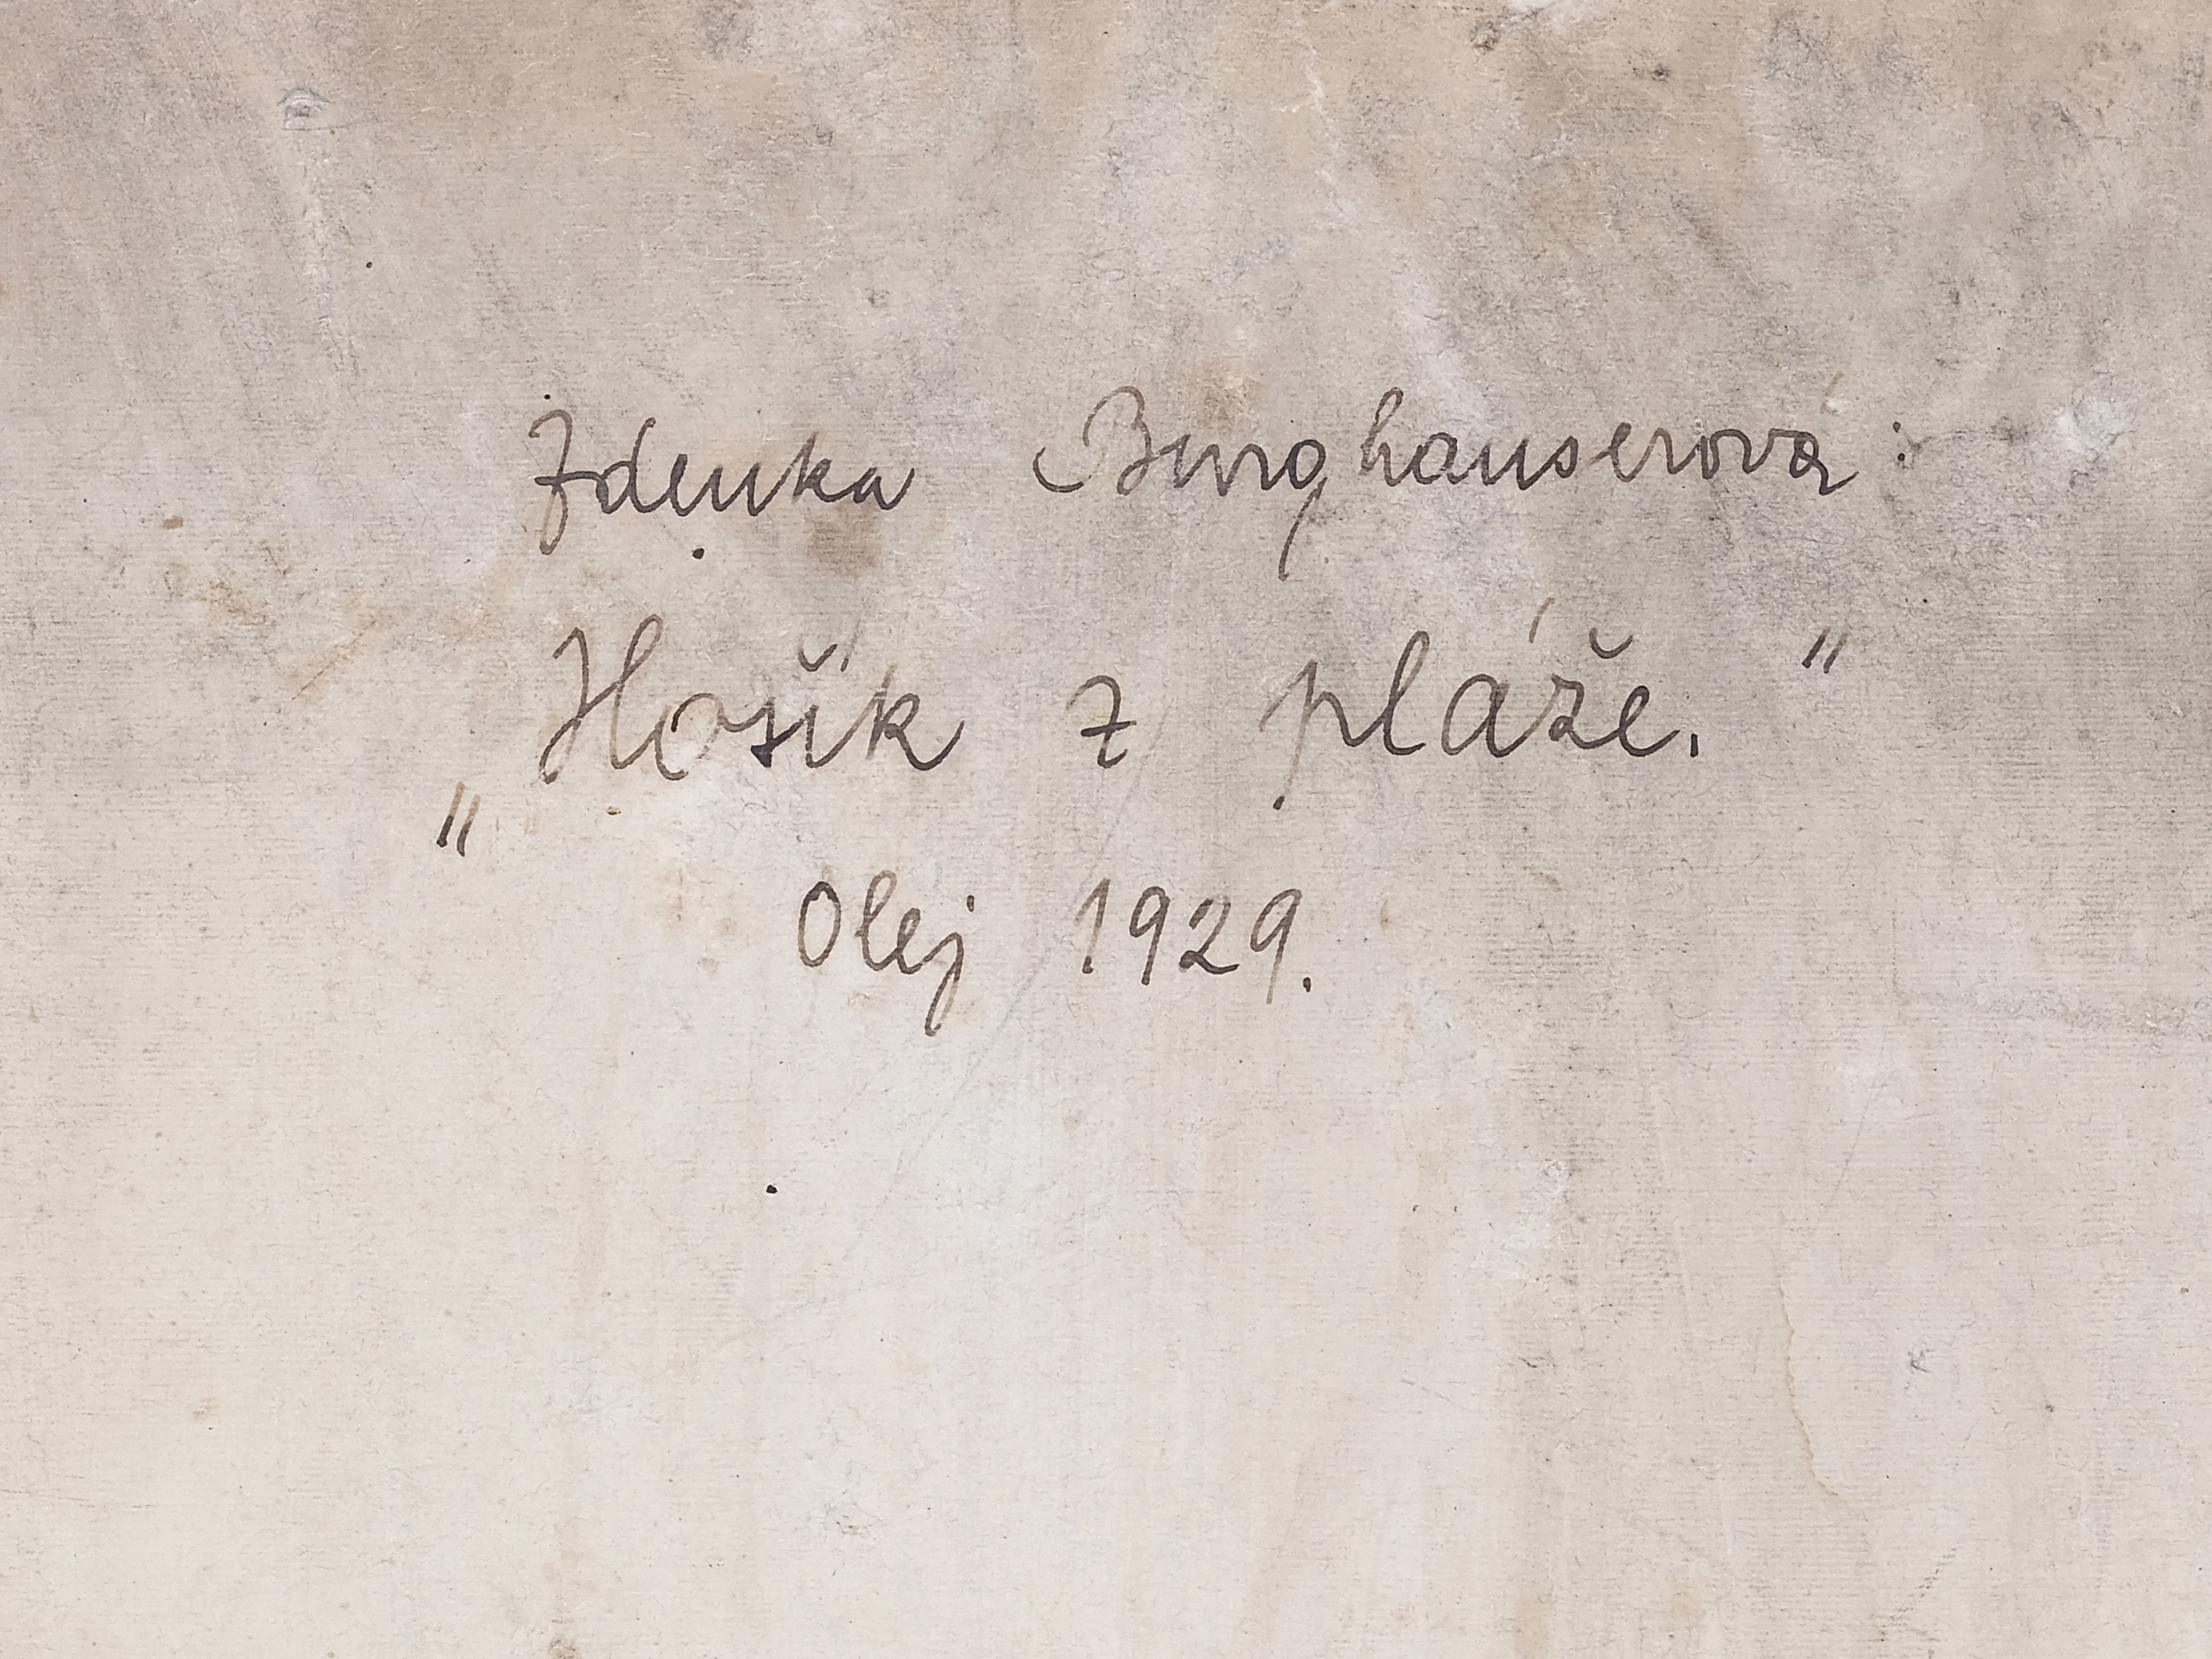 Zdenka Burghauserová:
„Hošík z pláže."
Olej 1929.